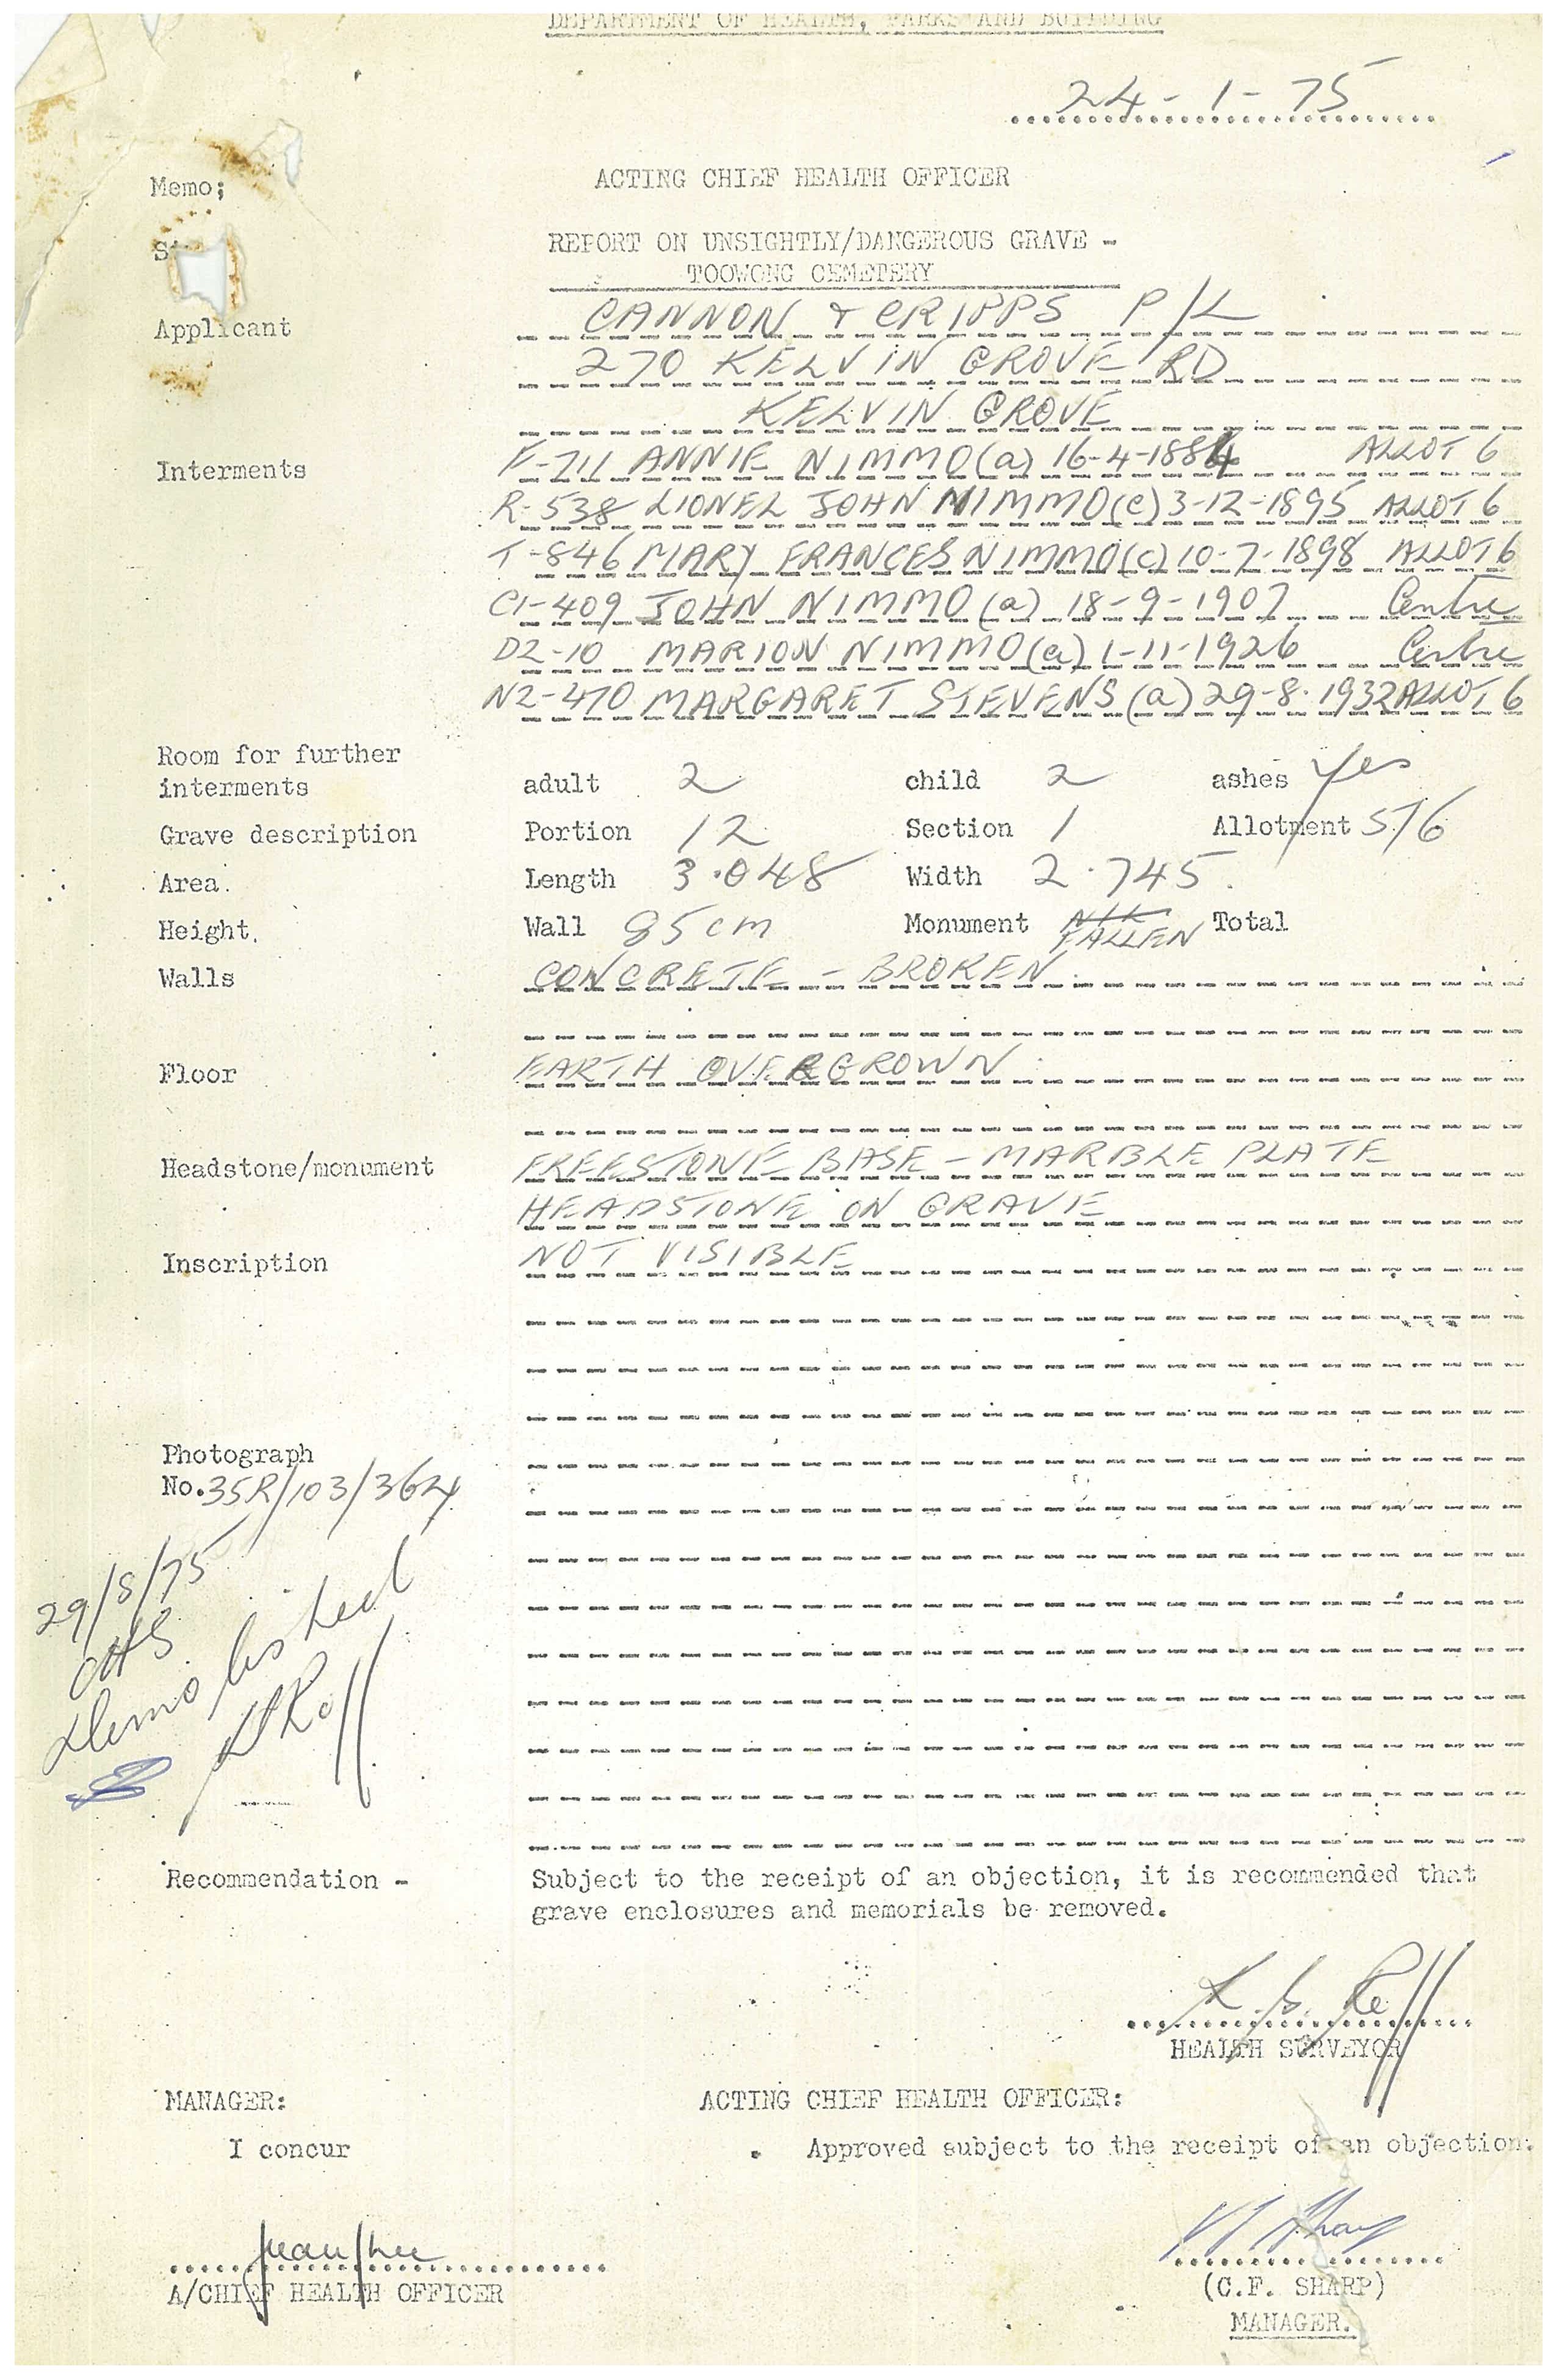 DEPARTMENT OF HEALTH, PARKS AND BUILDING
24-1-75
Memo; ACTING CHIEF HEALTH OFFICER
REPORT ON UNSIGHTLY/DANGEROUS GRAVE -
TOOWONG CEMETERY
Applicant CANNON & CRIPPS P/L
270 KELVIN GROVE RD
KELVIN GROVE
Interments F-711 ANNIE NIMMO (a) 16-4-1884 ALLOT 6
R-538 LIONEL JOHN NIMMO (c) 3-12-1895 ALLOT 6
T-846 MARY FRANCES NIMMO (c) 10-7-1898 ALLOT 6
C1-409 JOHN NIMMO (a) 18-9-1907 Centre
D2-10 MARION NIMMO (a) 1-11-1926 Centre
N2-470 MARGARET STEVENS (a) 29-8-1932 ALLOT 6
Room for further
interments adult 2 child 2 ashes Yes
Grave description Portion 12 Section 1 Allotment 5/6
Area. Length 3.048 Width 2.745.
Height. Wall 85cm Monument NIL FALLEN Total
Walls CONCRETE - BROKEN.
Floor EARTH OVERGROWN
Headstone/monument FREESTONE BASE - MARBLE PLATE
HEADSTONE ON GRAVE
Inscription NOT VISIBLE
Photograph
No. 35R/103/3624
29/8/75
CHS
Demolished
Recommendation - Subject to the receipt of an objection, it is recommended that
grave enclosures and memorials be removed.
HEALTH SURVEYOR
MANAGER: ACTING CHIEF HEALTH OFFICER:
I concur Approved subject to the receipt of an objection.
A/CHIEF HEALTH OFFICER (C.F. SHARP)
MANAGER.